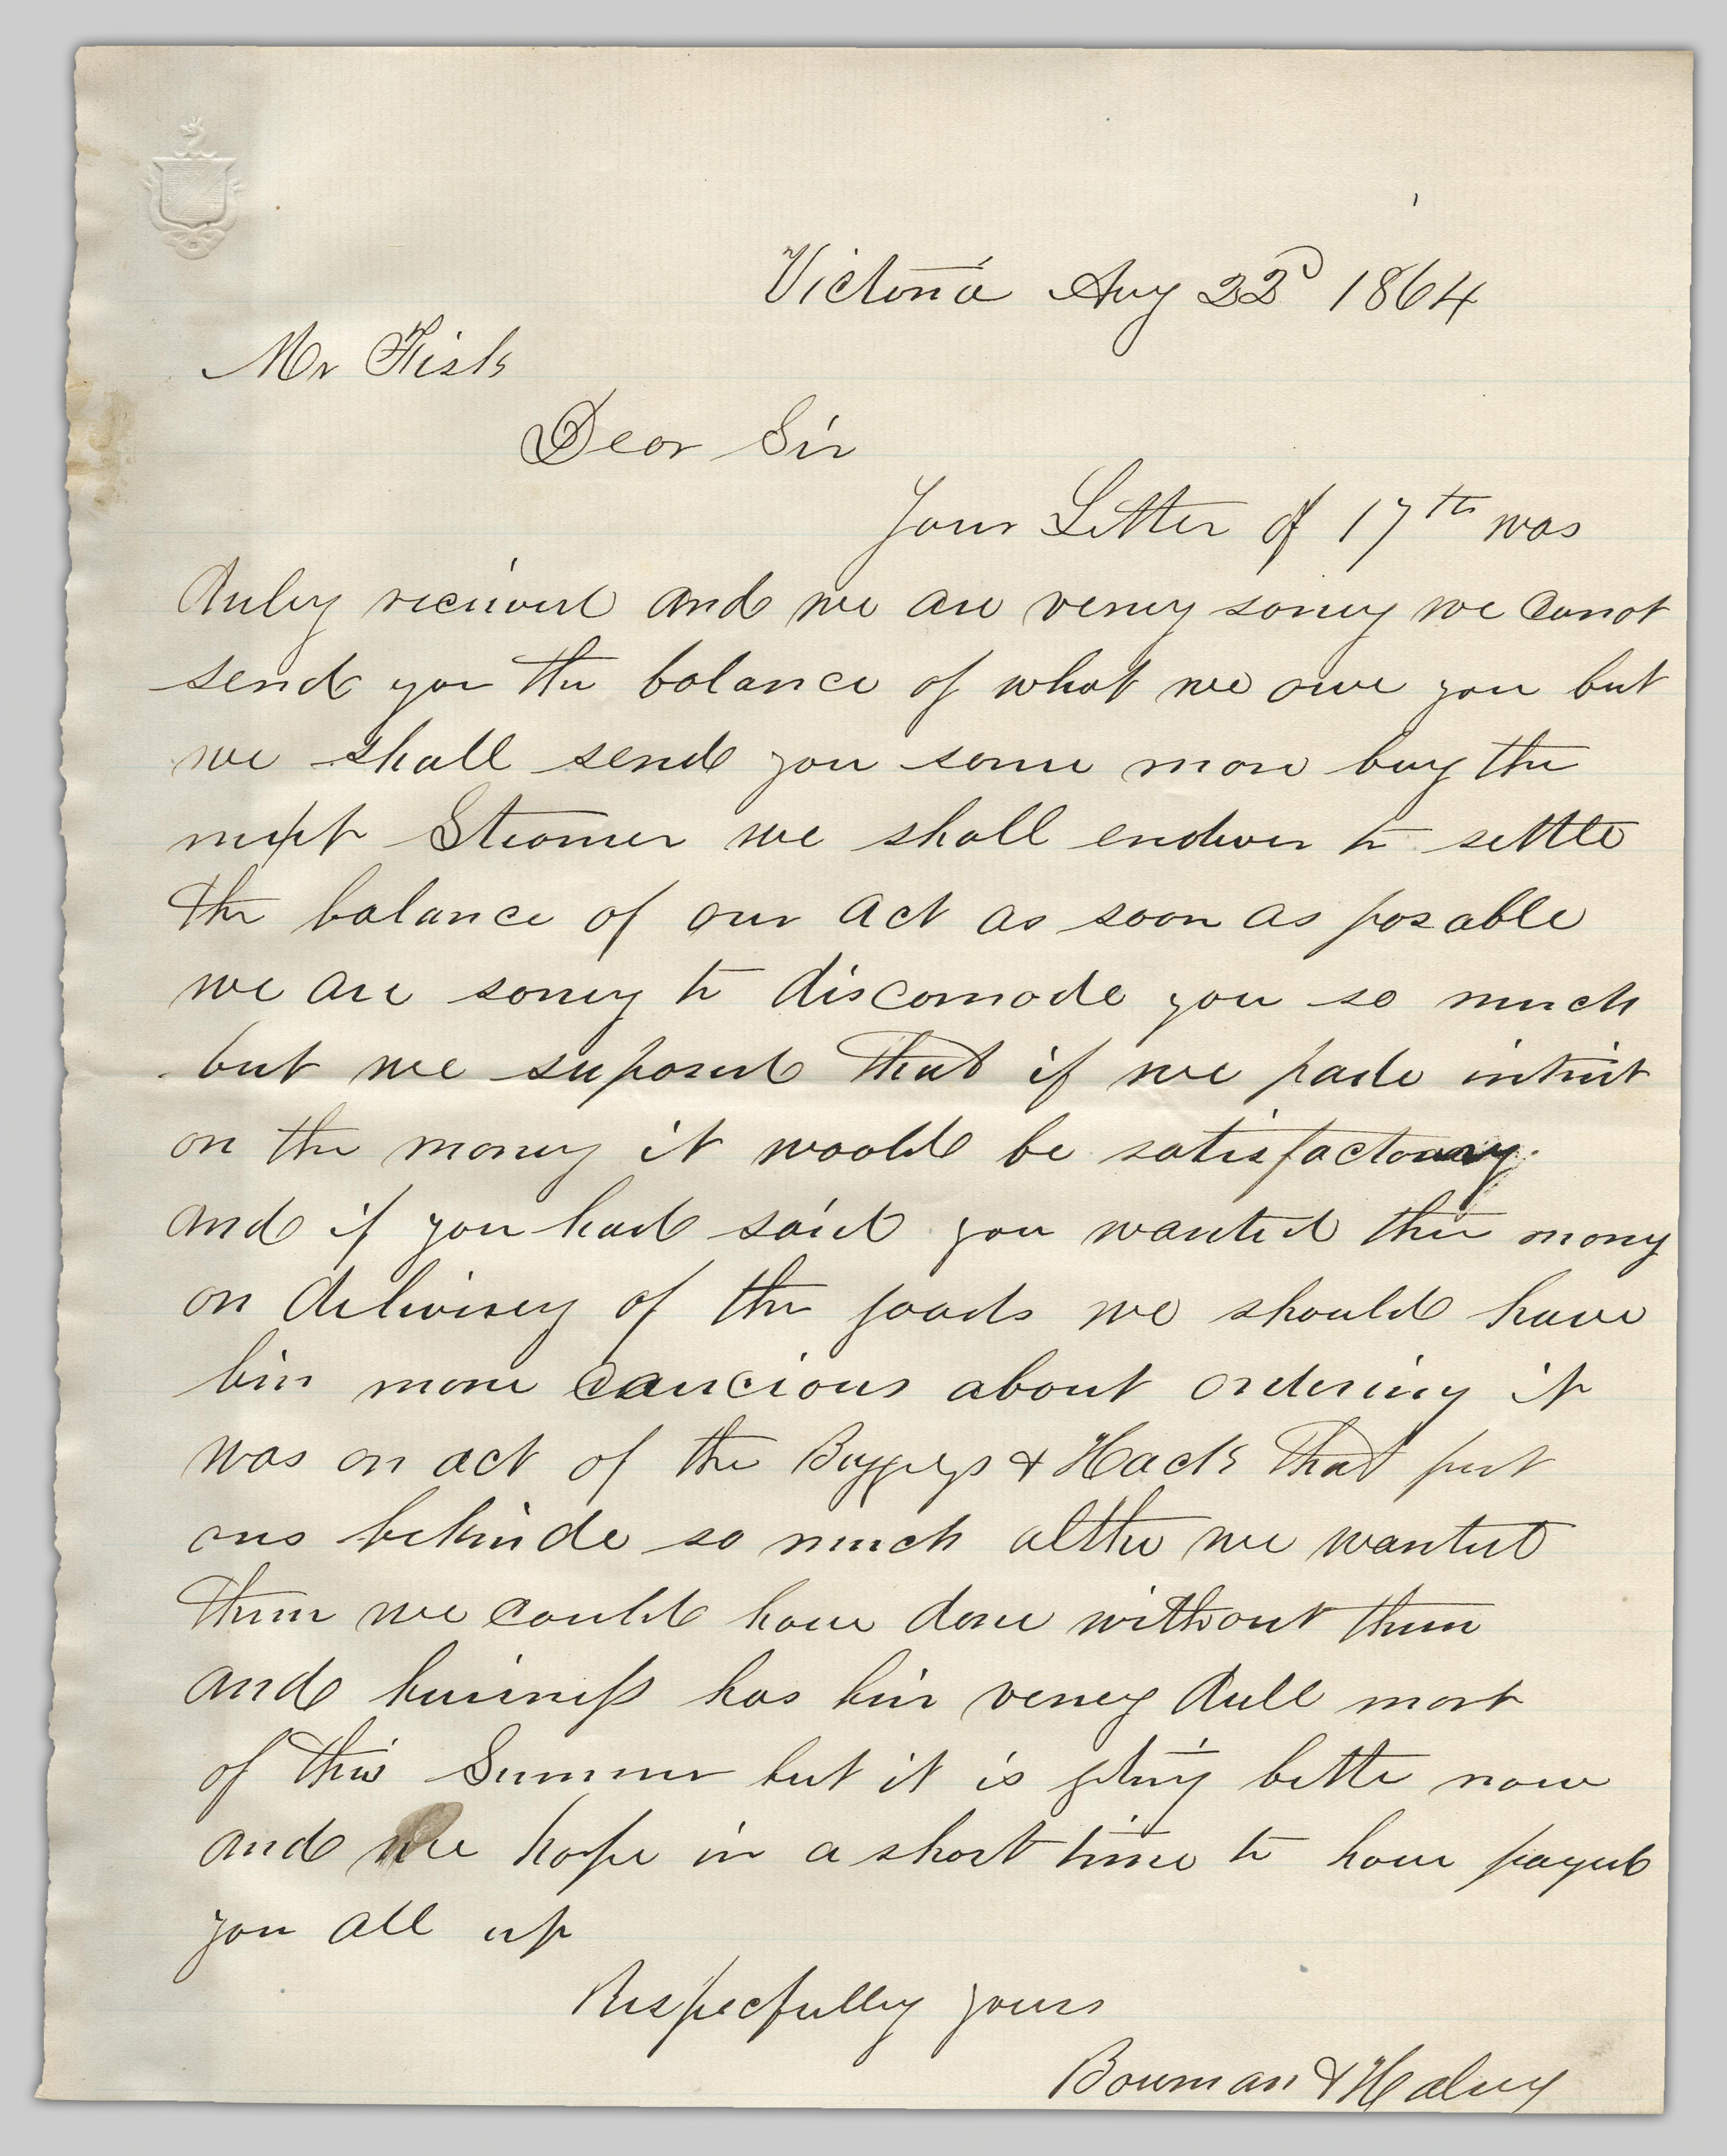 Victoria Aug 22d 1864
Mr Fisk
Dear Sir
Your Letter of 17th was
duley recieved and we are verey sorrey we canot
send you the balance of what we owe you but
we shall send you some more buy the
next Steamer we shall endever to settle
the balance of our act as soon as posable
we are sorrey to discomode you so much
but we suposed that if we pade intrist
on the money it woold be satisfactory
and if you had said you wanted the mony
on deliverey of the goods we should have
bin more caucious about ordering it
was on act of the Buggeys & Hack that put
ous behinde so much altho we wanted
them we could have done without them
and business has bin verey dull most
of this Summer but it is geting bette now
and we hope in a short time to have payed
you all up
Respecfulley yours
Bowman & Halsey